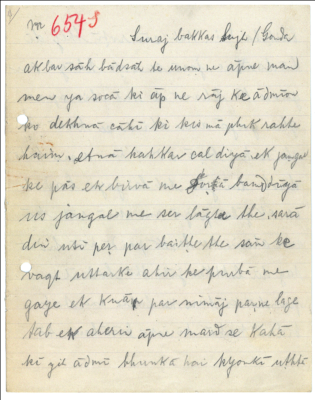 № 654 S
Suraj bakkas Singh / Gonda
akbar sāh bādsāh te unone āpne man
men ya socā ki āp ne rāj ke ādmīon
ko dekhnā cāhī ki kis mā phirk rahte
haim. etnā kahkar cal diyā ek jangal
ke pās ek birvā me bandh diyā
us jangal me ser lāgte the. sarā
din usi per par baithe the sām ke
vaqt uttarke ahir ke purbā me
gaye ek kuār par nimāj parne lage
tab ek aherin āpne mard se kahā
ki yil ādmī bhunkā hai kyonki uthtā